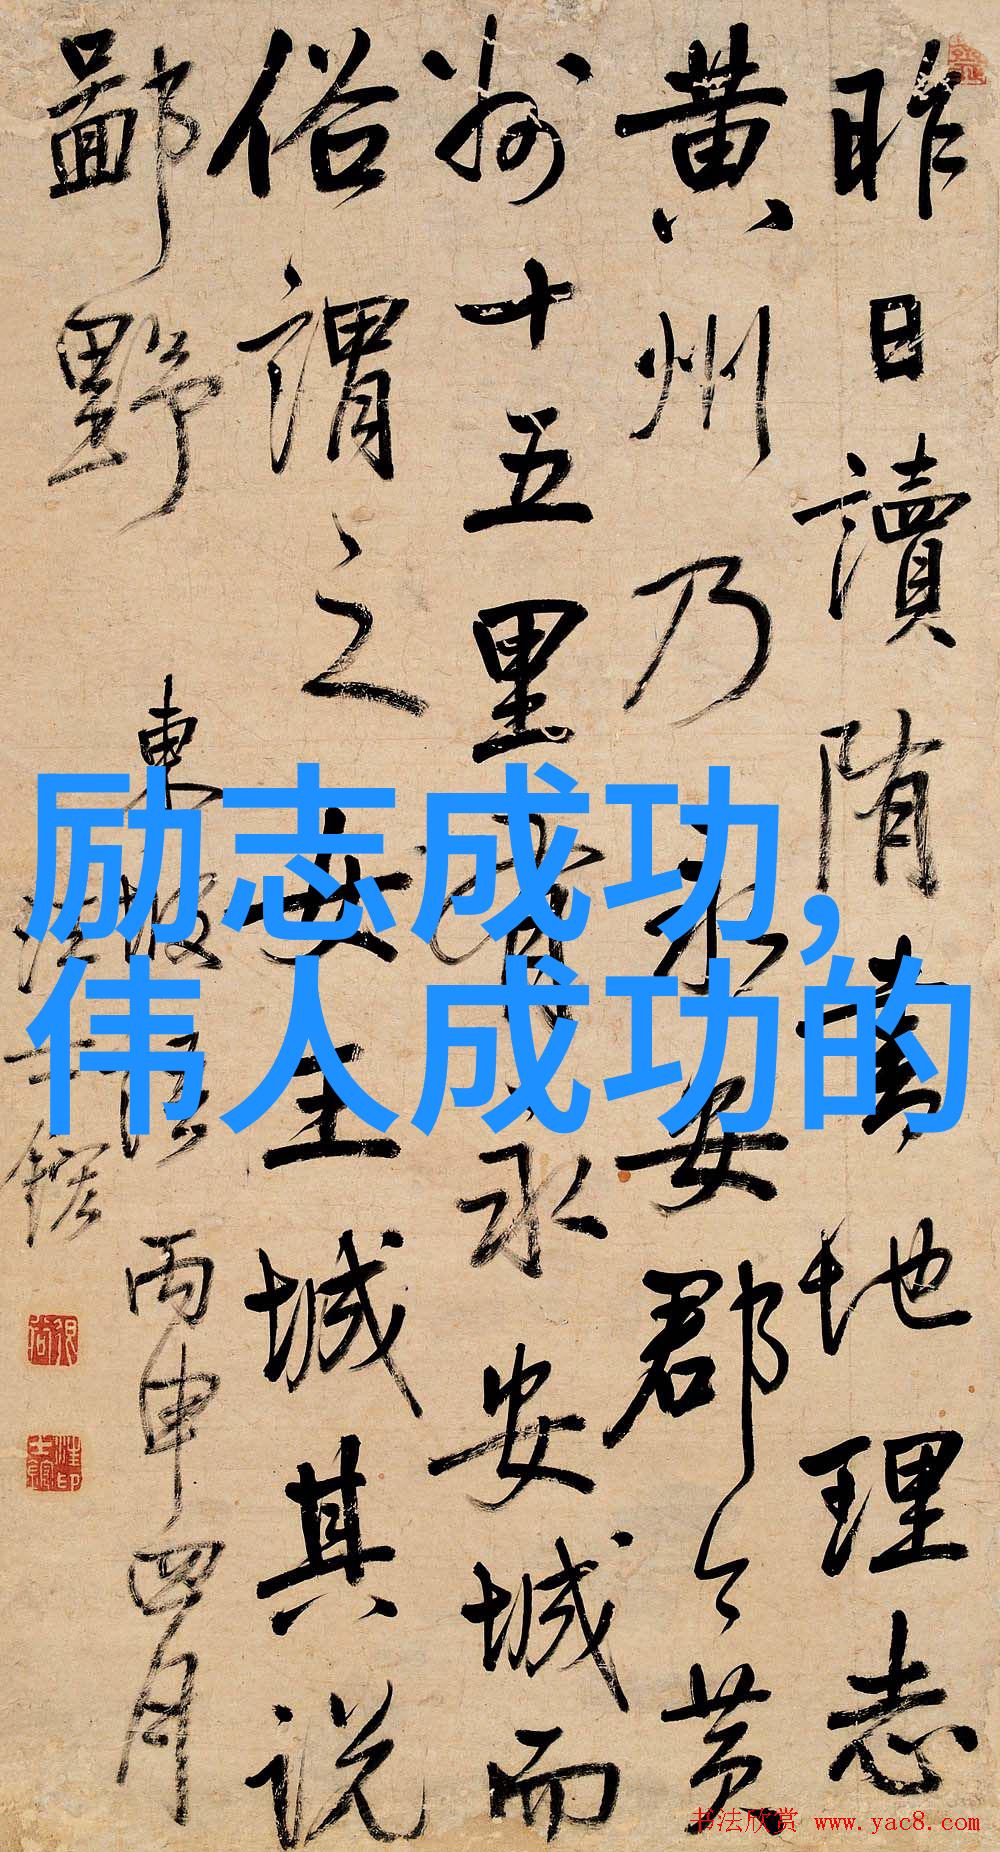 昨日讀隋書地理志
黄州乃永安郡今黄
州十五里有永安城而
俗謂之女王城其説
鄙野
東坡語 丙申四月
汪士鋐
励志成功,
伟人成功的
书法欣赏 www.yac8.com